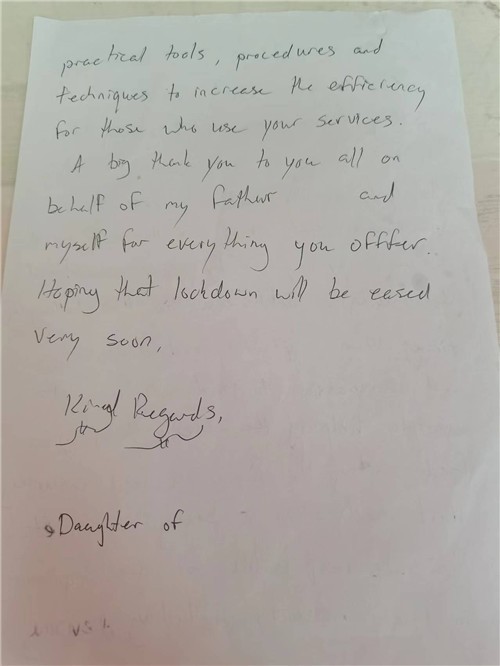 practical tools, procedures and
techniques to increase the efficiency
for those who use your services.
A big thank you to you all on
behalf of my father and
myself for everything you offfer.
Hoping that lockdown will be eased
very soon,
Kind Regards,
Daughter of